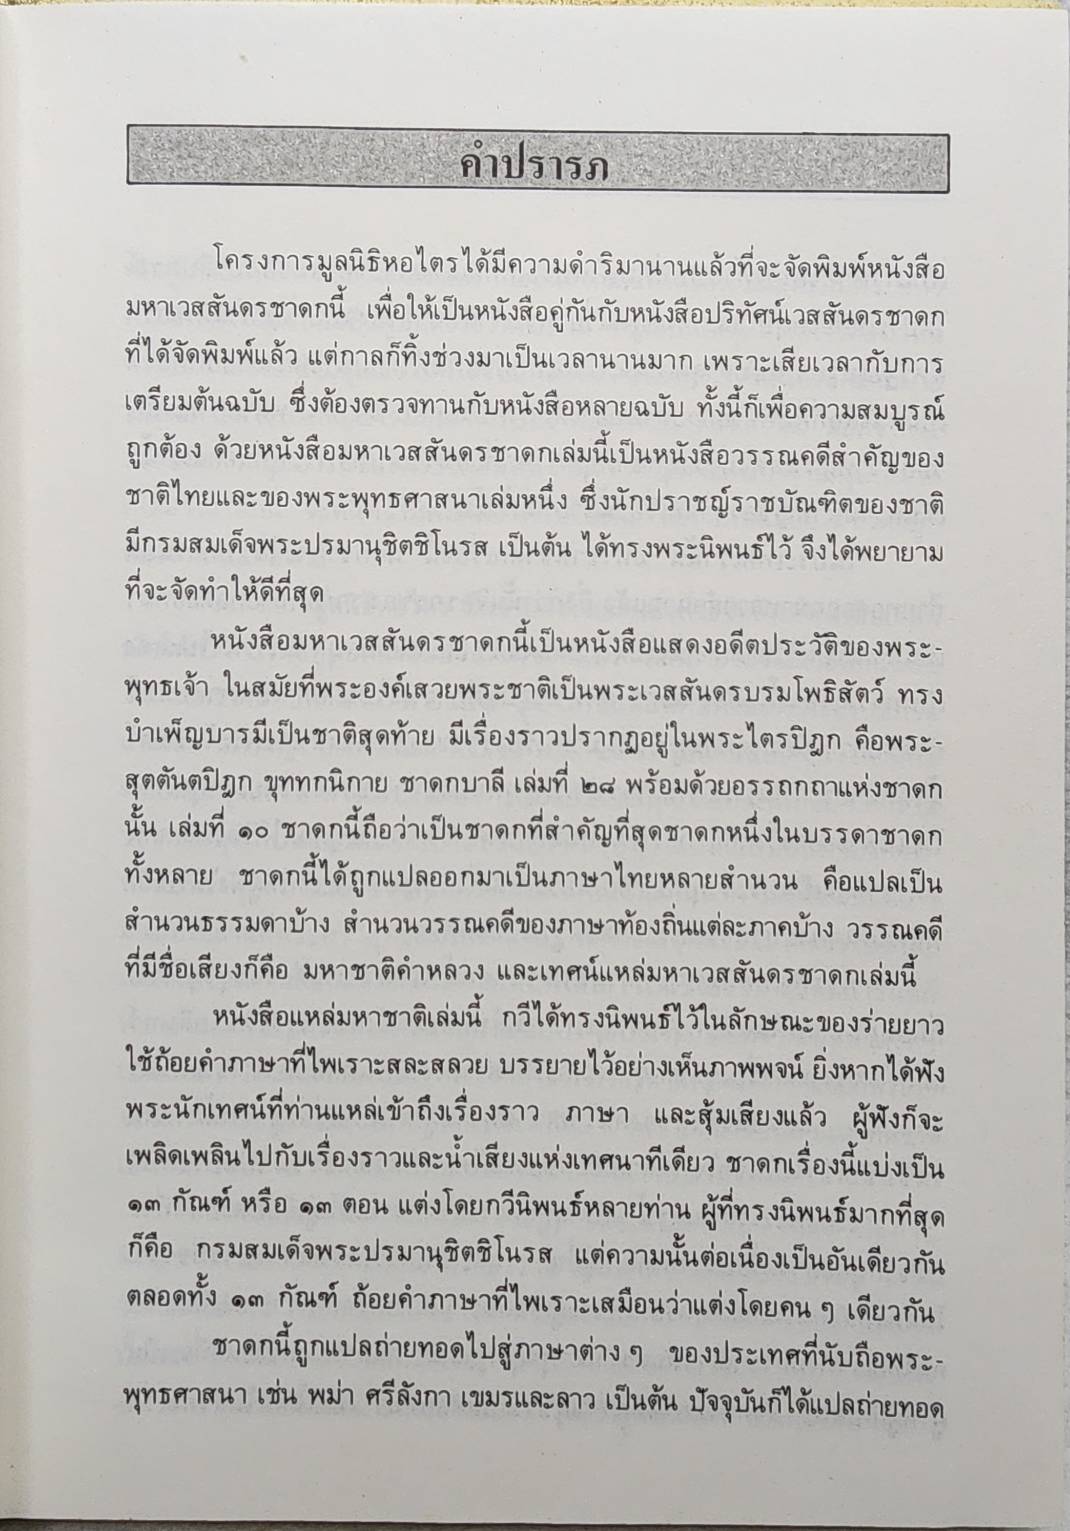 คำปรารภ
โครงการมูลนิธิหอไตรได้มีความดำริมานานแล้วที่จะจัดพิมพ์หนังสือ
มหาเวสสันดรชาดกนี้ เพื่อให้เป็นหนังสือคู่กันกับหนังสือปริทัศน์เวสสันดรชาดก
ที่ได้จัดพิมพ์แล้ว แต่กาลก็ทิ้งช่วงมาเป็นเวลานานมาก เพราะเสียเวลากับการ
เตรียมต้นฉบับ ซึ่งต้องตรวจทานกับหนังสือหลายฉบับ ทั้งนี้ก็เพื่อความสมบูรณ์
ถูกต้อง ด้วยหนังสือมหาเวสสันดรชาดกเล่มนี้เป็นหนังสือวรรณคดีสำคัญของ
ชาติไทยและของพระพุทธศาสนาเล่มหนึ่ง ซึ่งนักปราชญ์ราชบัณฑิตของชาติ
มีกรมสมเด็จพระปรมานุชิตชิโนรส เป็นต้น ได้ทรงพระนิพนธ์ไว้ จึงได้พยายาม
ที่จะจัดทำให้ดีที่สุด
หนังสือมหาเวสสันดรชาดกนี้เป็นหนังสือแสดงอดีตประวัติของพระ-
พุทธเจ้า ในสมัยที่พระองค์เสวยพระชาติเป็นพระเวสสันดรบรมโพธิสัตว์ ทรง
บำเพ็ญบารมีเป็นชาติสุดท้าย มีเรื่องราวปรากฏอยู่ในพระไตรปิฎก คือพระ-
สุตตันตปิฎก ขุททกนิกาย ชาดกบาลี เล่มที่ ๒๘ พร้อมด้วยอรรถกถาแห่งชาดก
นั้น เล่มที่ ๑๐ ชาดกนี้ถือว่าเป็นชาดกที่สำคัญที่สุดชาดกหนึ่งในบรรดาชาดก
ทั้งหลาย ชาดกนี้ได้ถูกแปลออกมาเป็นภาษาไทยหลายสำนวน คือแปลเป็น
สำนวนธรรมดาบ้าง สำนวนวรรณคดีของภาษาท้องถิ่นแต่ละภาคบ้าง วรรณคดี
ที่มีชื่อเสียงก็คือ มหาชาติคำหลวง และเทศน์แหล่มหาเวสสันดรชาดกเล่มนี้
หนังสือแหล่มหาชาติเล่มนี้ กวีได้ทรงนิพนธ์ไว้ในลักษณะของร่ายยาว
ใช้ถ้อยคำภาษาที่ไพเราะสละสลวย บรรยายไว้อย่างเห็นภาพพจน์ ยิ่งหากได้ฟัง
พระนักเทศน์ที่ท่านแหล่เข้าถึงเรื่องราว ภาษา และสุ้มเสียงแล้ว ผู้ฟังก็จะ
เพลิดเพลินไปกับเรื่องราวและน้ำเสียงแห่งเทศนาทีเดียว ชาดกเรื่องนี้แบ่งเป็น
๑๓ กัณฑ์ หรือ ๑๓ ตอน แต่งโดยกวีนิพนธ์หลายท่าน ผู้ที่ทรงนิพนธ์มากที่สุด
ก็คือ กรมสมเด็จพระปรมานุชิตชิโนรส แต่ความนั้นต่อเนื่องเป็นอันเดียวกัน
ตลอดทั้ง ๑๓ กัณฑ์ ถ้อยคำภาษาที่ไพเราะเสมือนว่าแต่งโดยคน ๆ เดียวกัน
ชาดกนี้ถูกแปลถ่ายทอดไปสู่ภาษาต่าง ๆ ของประเทศที่นับถือพระ-
พุทธศาสนา เช่น พม่า ศรีลังกา เขมรและลาว เป็นต้น ปัจจุบันก็ได้แปลถ่ายทอด